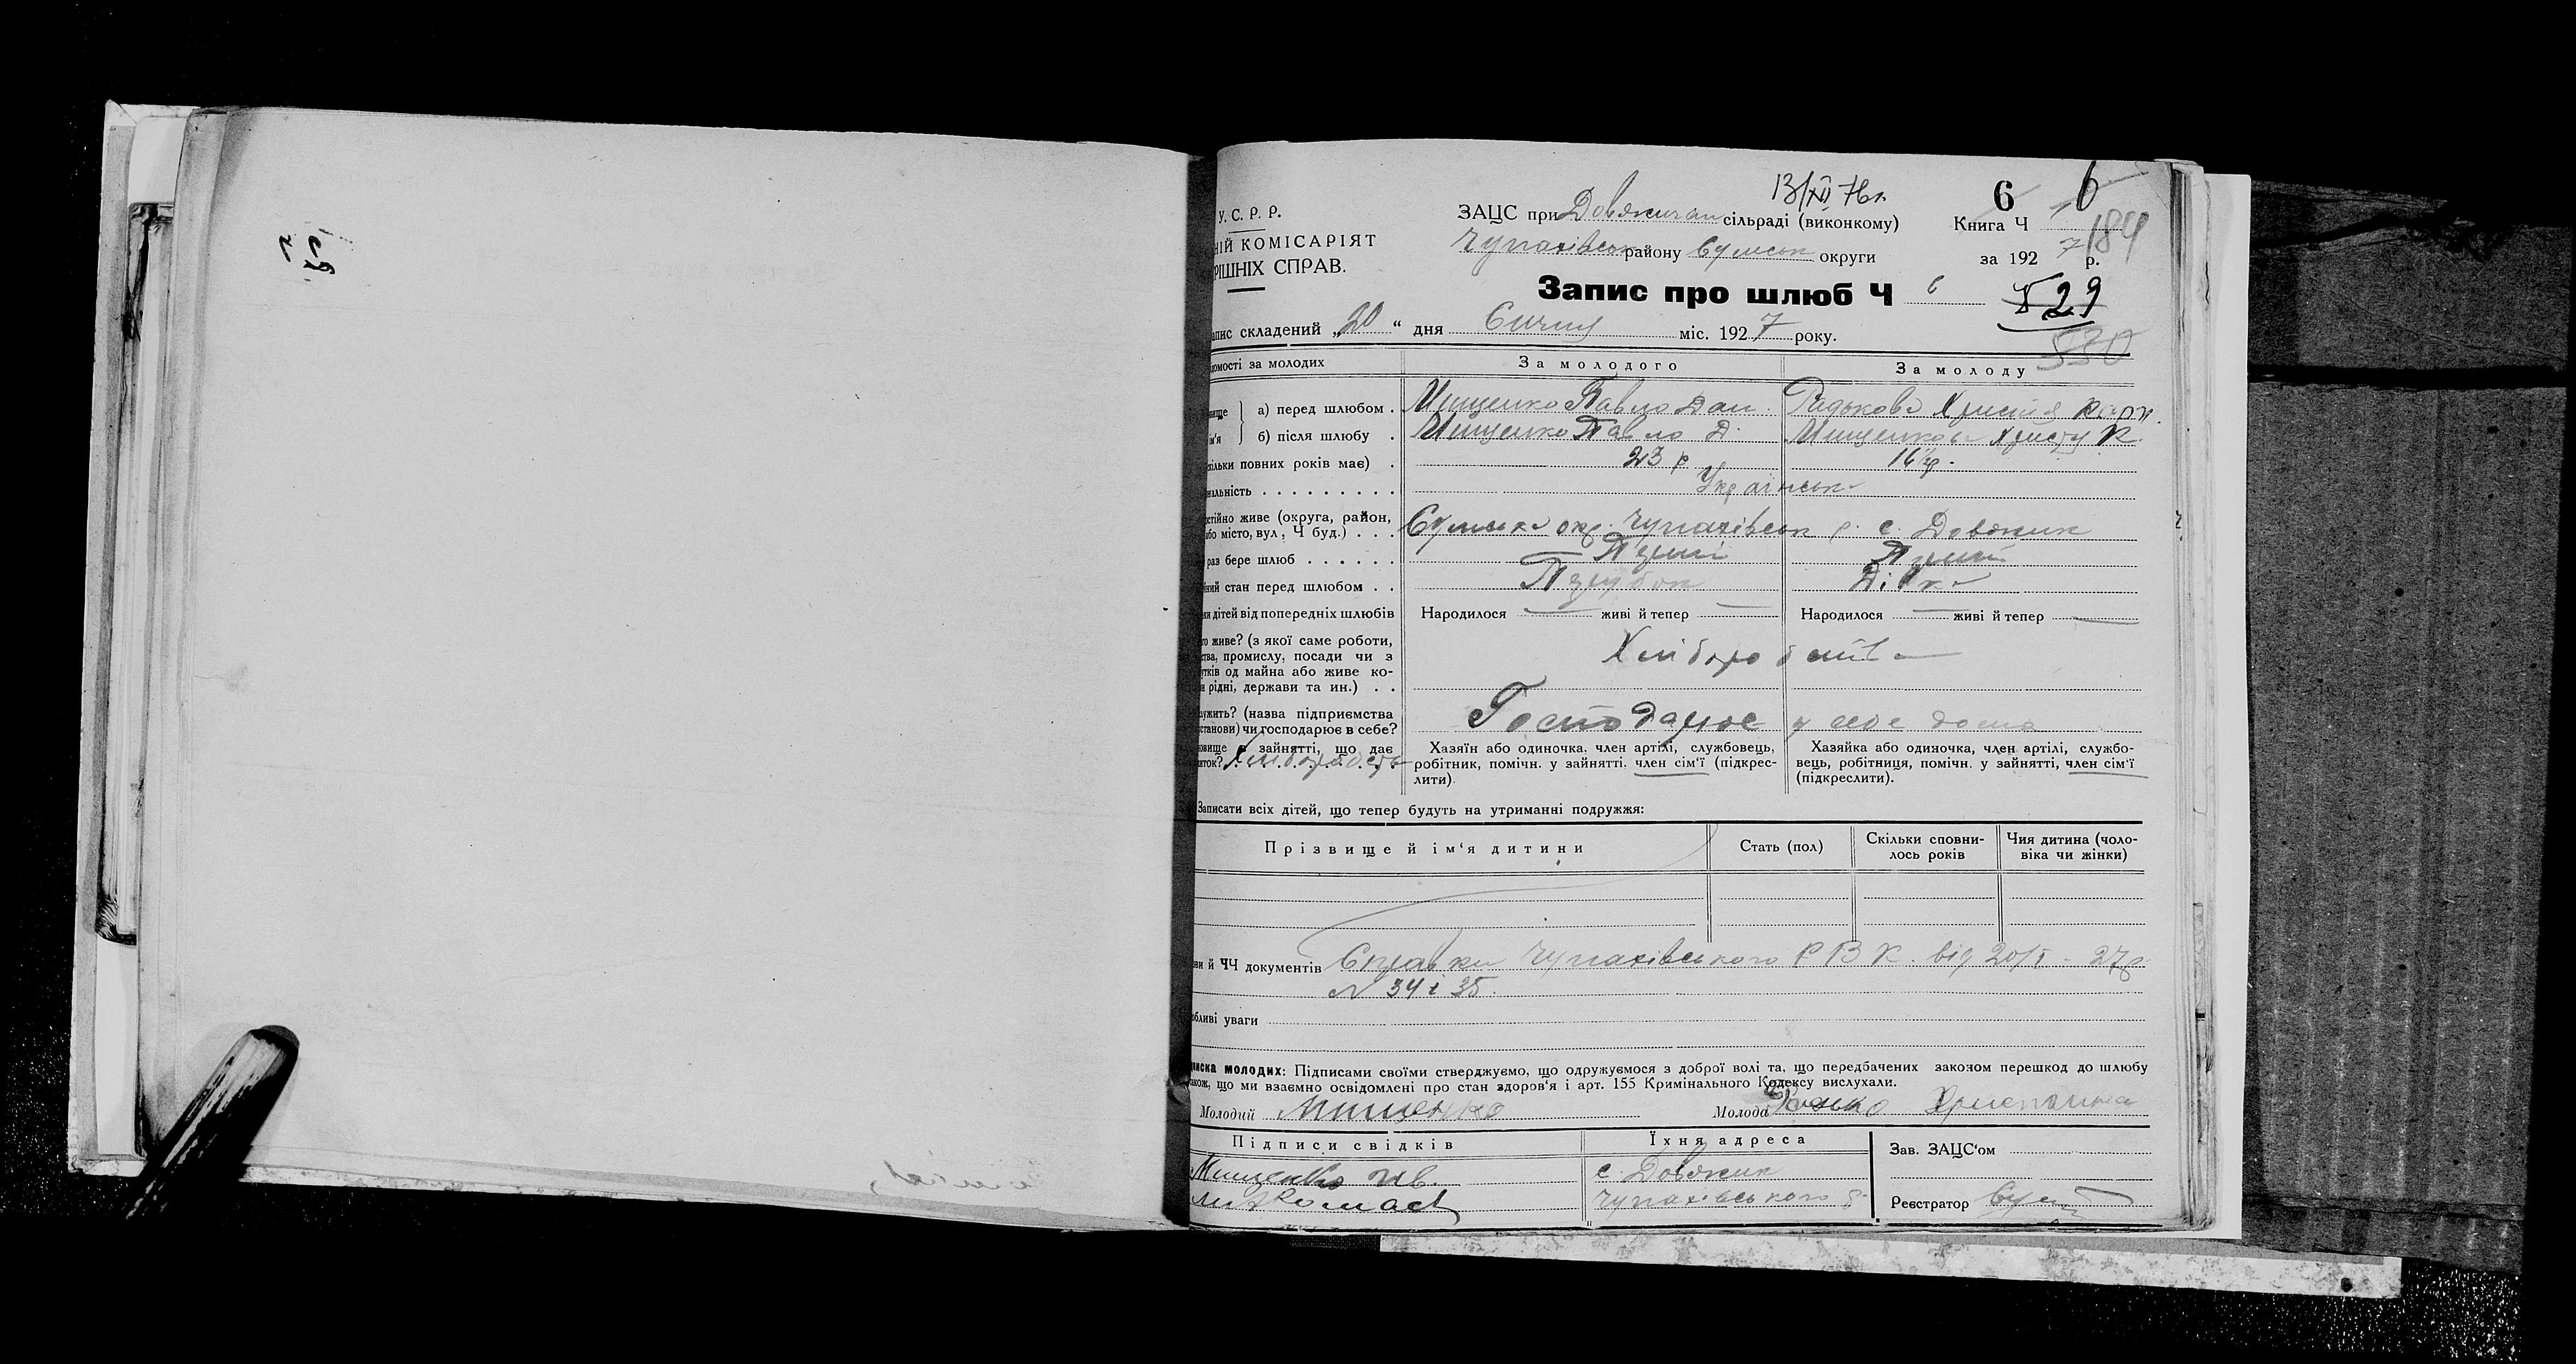 13/XII 76 г.
6 6
У. С. Р. Р.
ЗАЦС при Довжичан сільраді (виконкому) Книга Ч
184
НІЙ КОМІСАРІЯТ
РІШНІХ СПРАВ.
Чупахівськ району Сумськ округи за 1927 р.
Запис про шлюб Ч 6
529
530
апис складений „20“ дня Січня міс. 1927 року.
домості за молодих За молодого За молоду
вище а) перед шлюбом . Мищенко Павло Дан. Радькова Христя Карп.
ім'я б) після шлюбу . Мищенко Павло Д. Мищенкова Христя К.
кільки повних років має) . 23 р. 16½ р.
нальність . . . . . . . . . Українська
остійно живе (округа, район,
або місто, вул., Ч буд.) . . . Сумська окр. Чупахівськ р. с. Довжик
раз бере шлюб . . . . . . Перший Перший
йний стан перед шлюбом . . Парубок Дівка
ки дітей від попередніх шлюбів Народилося — живі й тепер — Народилося — живі й тепер —
го живе? (з якої саме роботи,
ства, промислу, посади чи з
утків од майна або живе ко-
и рідні, держави та ин.) . .
Хліборобство
лужить? (назва підприємства
станови) чи господарює в себе? Господарює у себе дома
овище в зайнятті, що дає
иток?
Хазяїн або одиночка, член артілі, службовець,
робітник, помічн. у зайнятті. член сім'ї (підкрес-
лити).
Хазяйка або одиночка, член артілі, службо-
вець, робітниця, помічн. у зайнятті, член сім'ї
(підкреслити).
Записати всіх дітей, що тепер будуть на утриманні подружжя:
Прізвище й ім'я дитини Стать (пол) Скільки сповни-
лось років Чия дитина (чоло-
віка чи жінки)
ви й ЧЧ документів Справки Чупахівського РВК. від 20/I - 27 р.
№ 34 і 35.
обливі уваги
писка молодих: Підписами своїми стверджуємо, що одружуємося з доброї волі та, що передбачених законом перешкод до шлюбу
акож, що ми взаємно освідомлені про стан здоров'я і арт. 155 Кримінального Кодексу вислухали.
Молодий Мищенко Молода Радько Христина
Підписи свідків Їхня адреса
Зав. ЗАЦС'ом
Мищенко Ив. с. Довжик
Чупахівського р.
Реєстратор